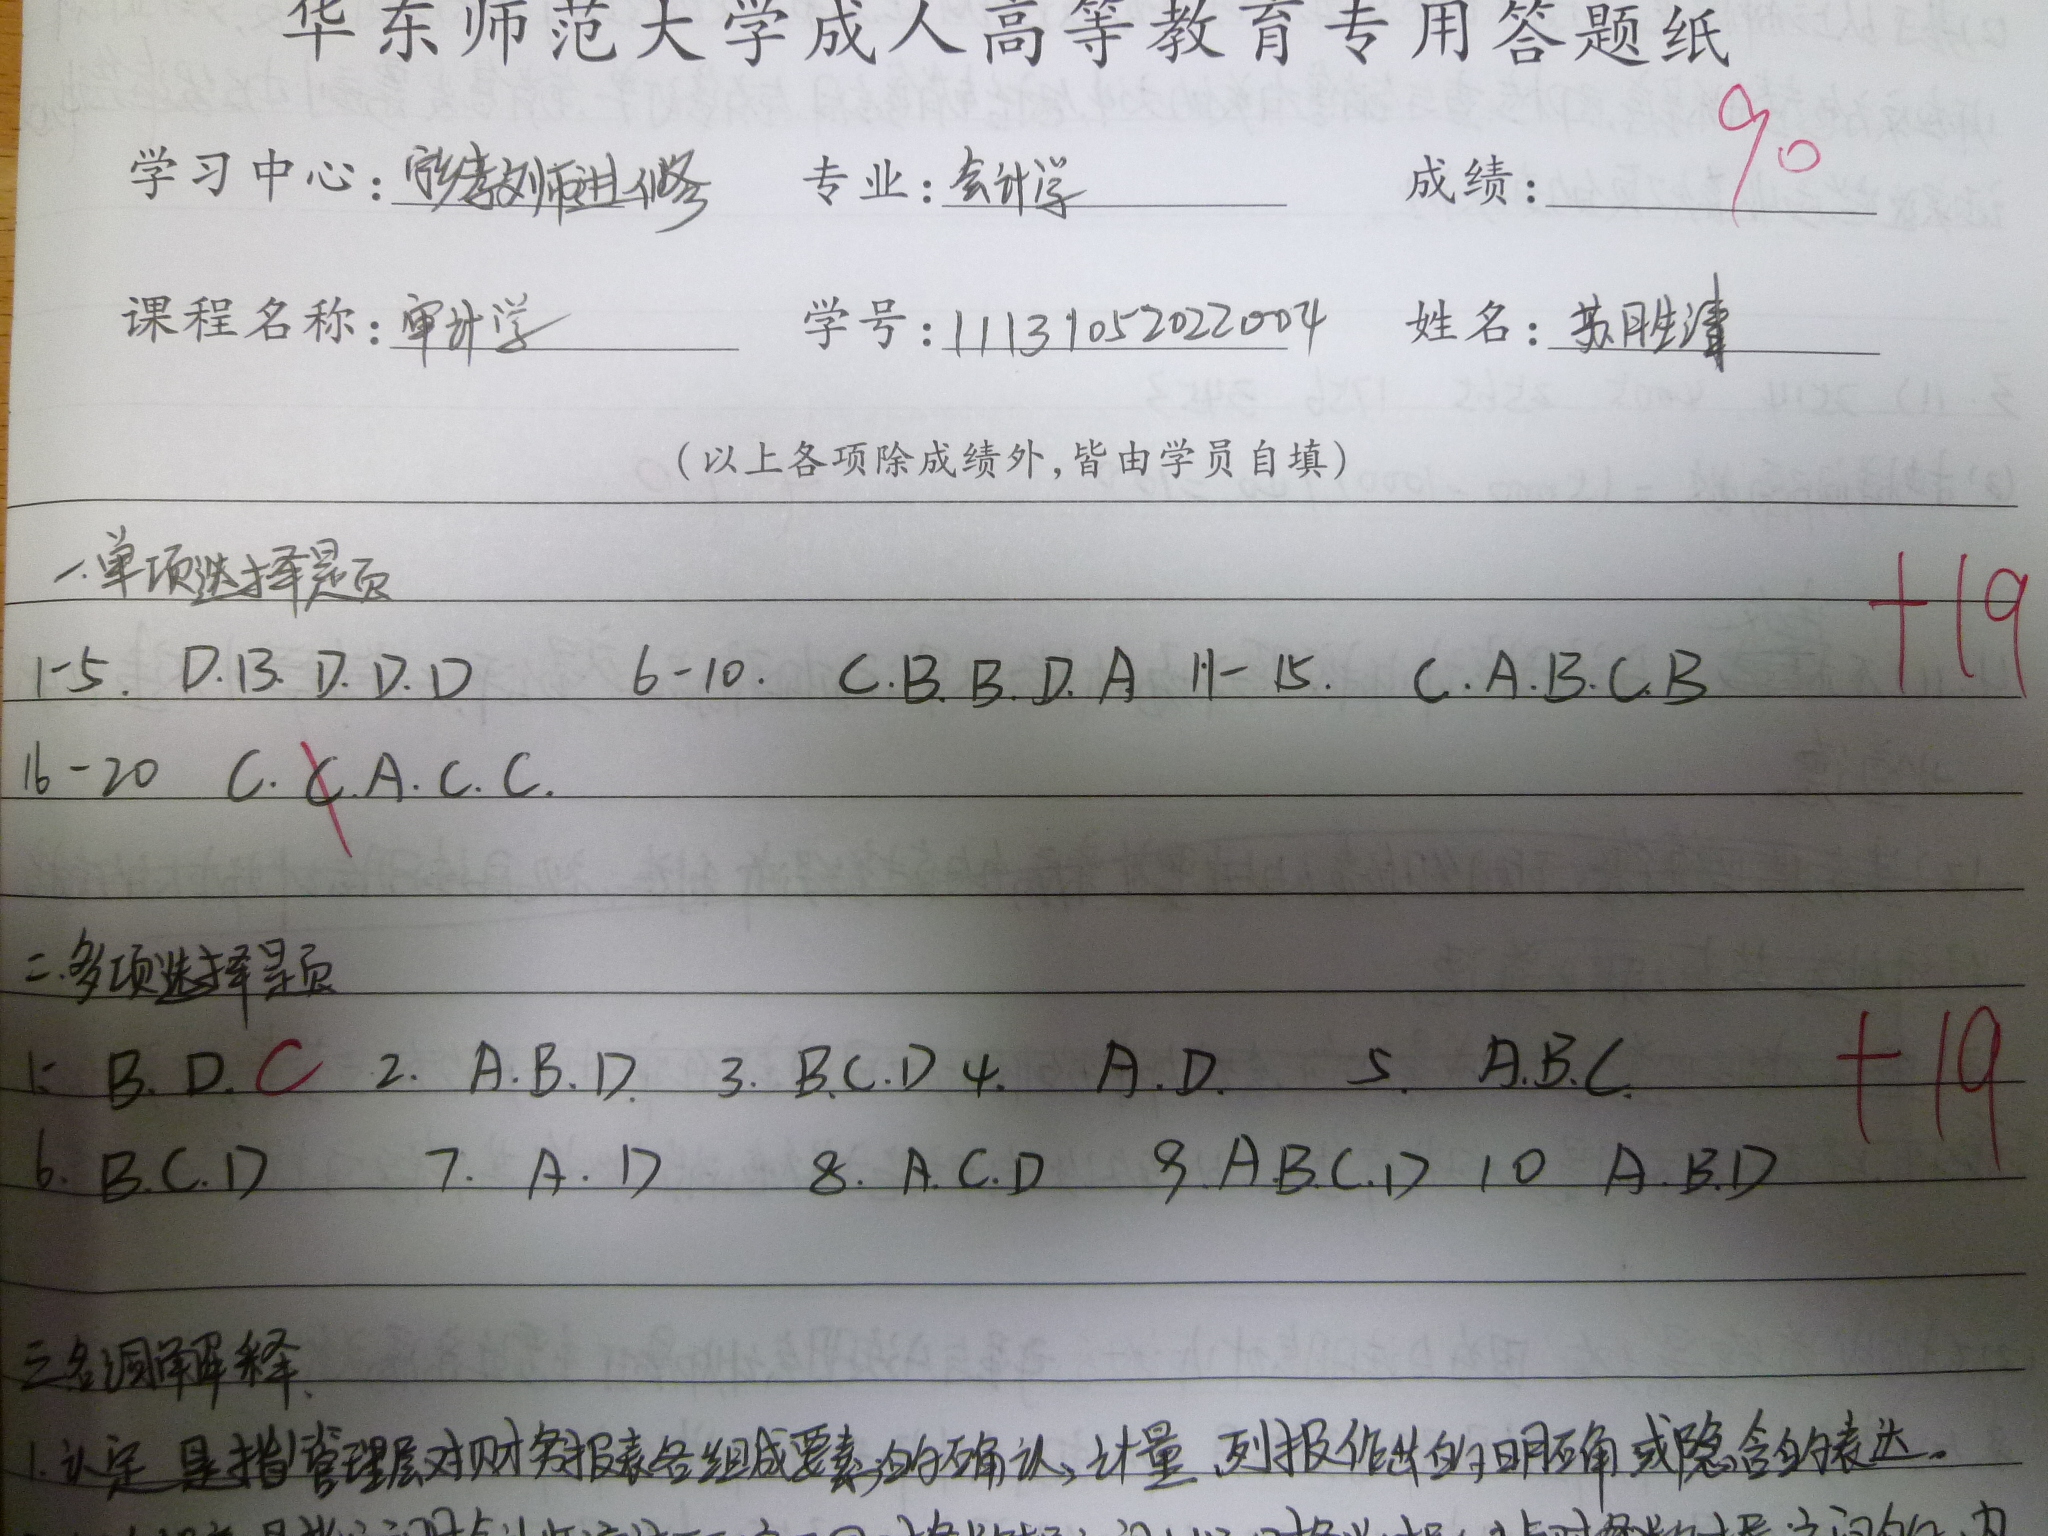 华东师范大学成人高等教育专用答题纸
学习中心：教师进修 专业：会计学 成绩：90
课程名称：审计学 学号：11131052022004 姓名：苏胜清
（以上各项除成绩外，皆由学员自填）
一.单项选择题 +19
1-5. D.B.D.D.D 6-10. C.B.B.D.A 11-15. C.A.B.C.B
16-20 C.C.A.C.C.
二.多项选择题
1. B.D.C 2. A.B.D. 3. B.C.D 4. A.D. 5. A.B.C. +19
6. B.C.D 7. A.D 8. A.C.D 9. A.B.C.D 10 A.B.D
三名词解释.
1.认定 是指管理层对财务报表各组成要素的确认、计量、列报作出的明确或隐含的表达。